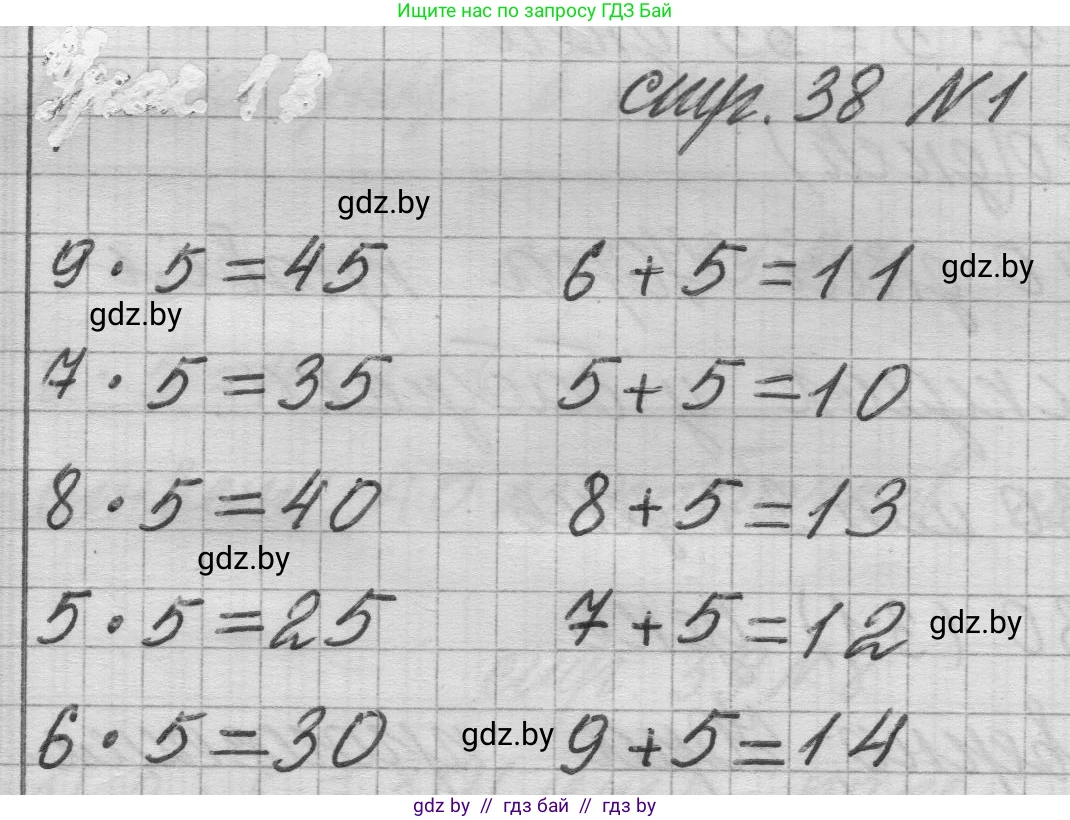 Ищите нас по запросу ГДЗ Бай
Урок 11
стр. 38 №1
gdz.by
9 · 5 = 45 6 + 5 = 11 gdz.by
gdz.by
7 · 5 = 35 5 + 5 = 10
8 · 5 = 40 8 + 5 = 13
gdz.by
5 · 5 = 25 7 + 5 = 12 gdz.by
6 · 5 = 30 gdz.by 9 + 5 = 14
gdz by // гдз бай // гдз by